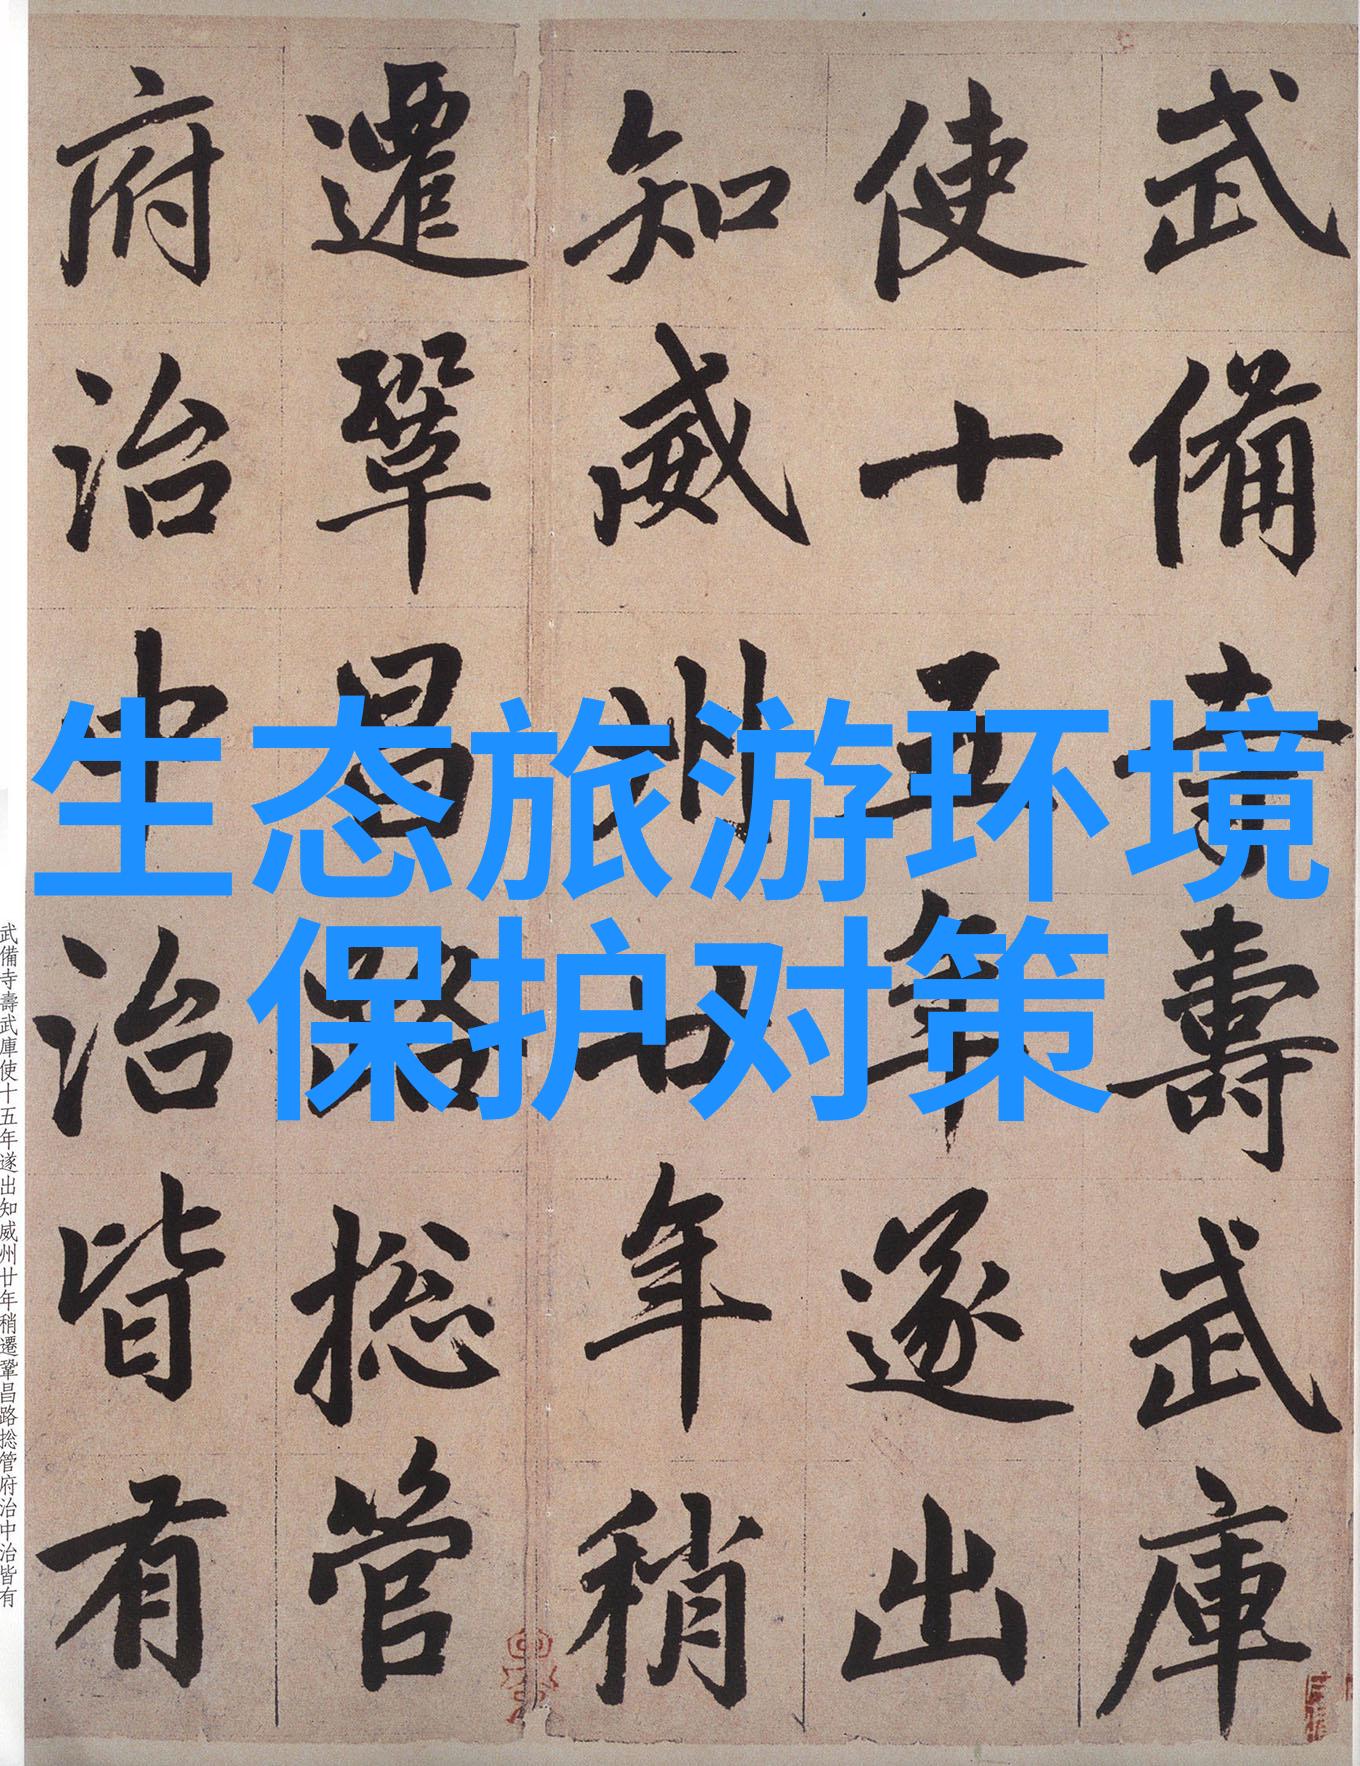 武備寺壽武庫
使十五年遂出
知威州廿年稍
遷鞏昌路捴管
府治中治皆有
生态旅游环境
保护对策
武備寺壽武庫使十五年遂出知威州廿年稍遷鞏昌路捴管府治中治皆有